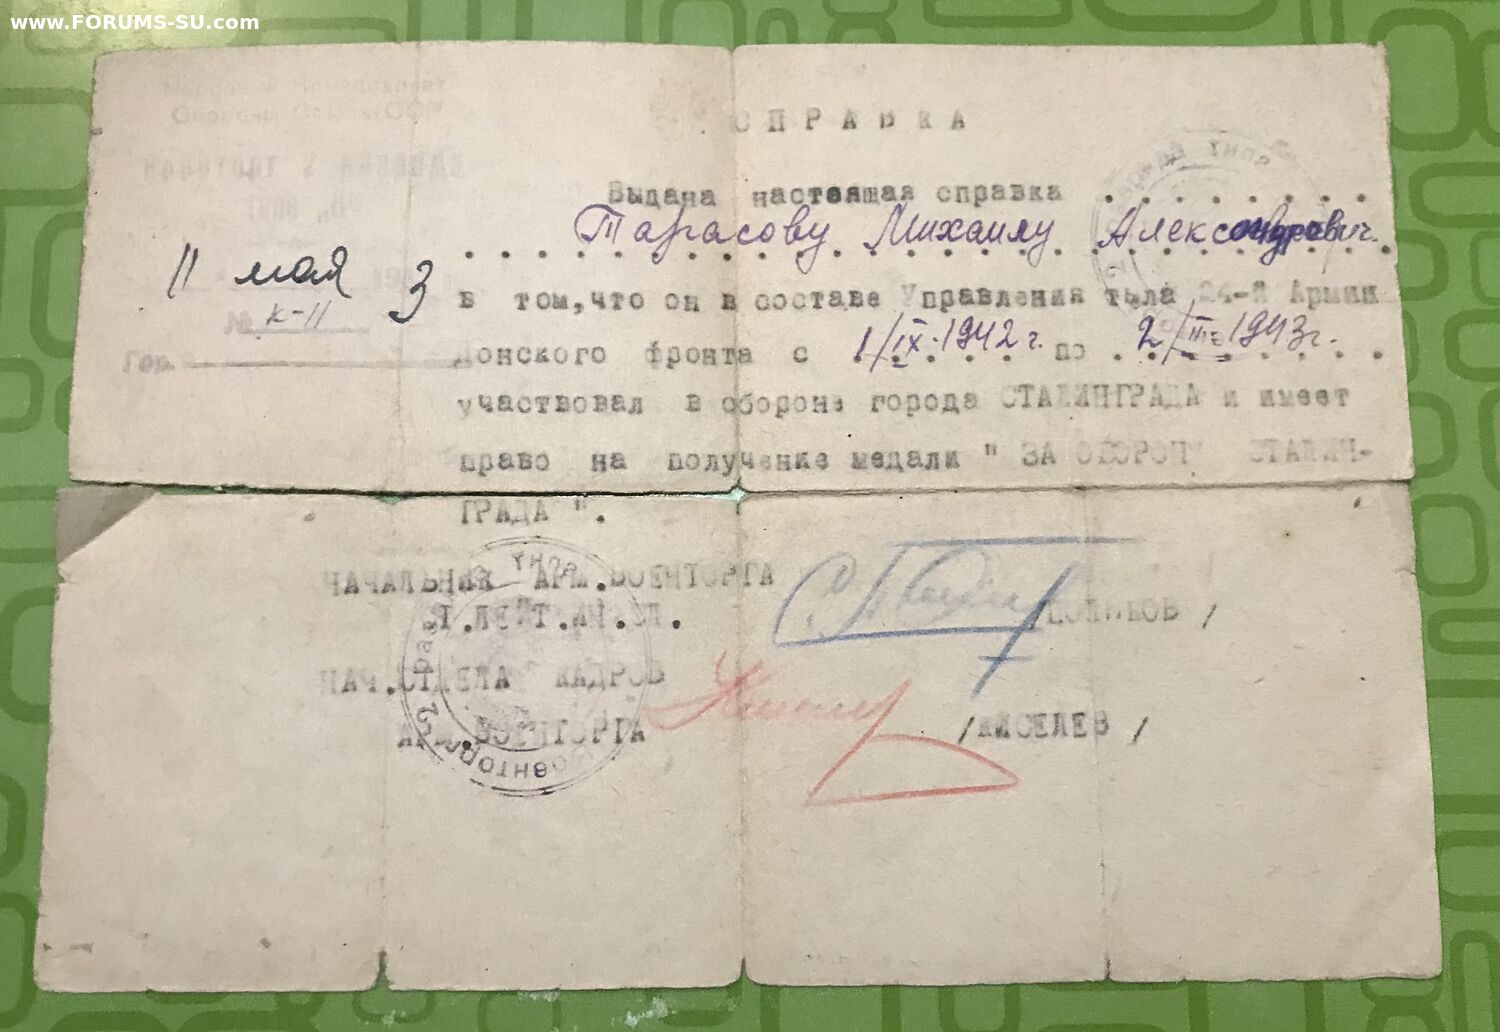 www.FORUMS-SU.com
Народный Комиссариат
Обороны Союза ССР
СПРАВКА
Выдана настоящая справка . . . . . . . .
Тарасову Михаилу Александрович.
11 мая 3
в том, что он в составе Управления тыла 24-й Армии
№ к-11
Донского фронта с 1/IX-1942 г. по 2/III-1943 г.
Гор.
участвовал в обороне города СТАЛИНГРАДА и имеет
право на получение медали " ЗА ОБОРОНУ СТАЛИН-
ГРАДА ".
НАЧАЛЬНИК АРМ.ВОЕНТОРГА
НАЧ.ОТДЕЛА КАДРОВ
АРМ.ВОЕНТОРГА /КИСЕЛЕВ/